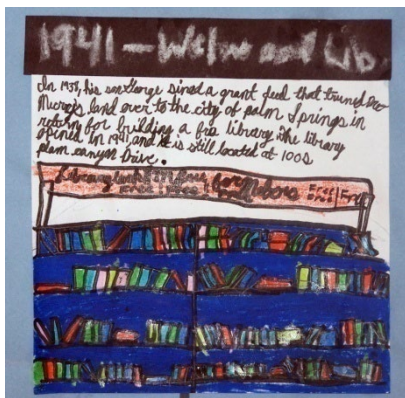 1941 – Welw and Lib
In 1938, his son George sined a grant feed that truned Dr
land over to the city of palm Springs in
return for building a fre library. The library
opined in 1941, and it is still located at 100 S
plam canyon Drive.
Library Free for Free Free